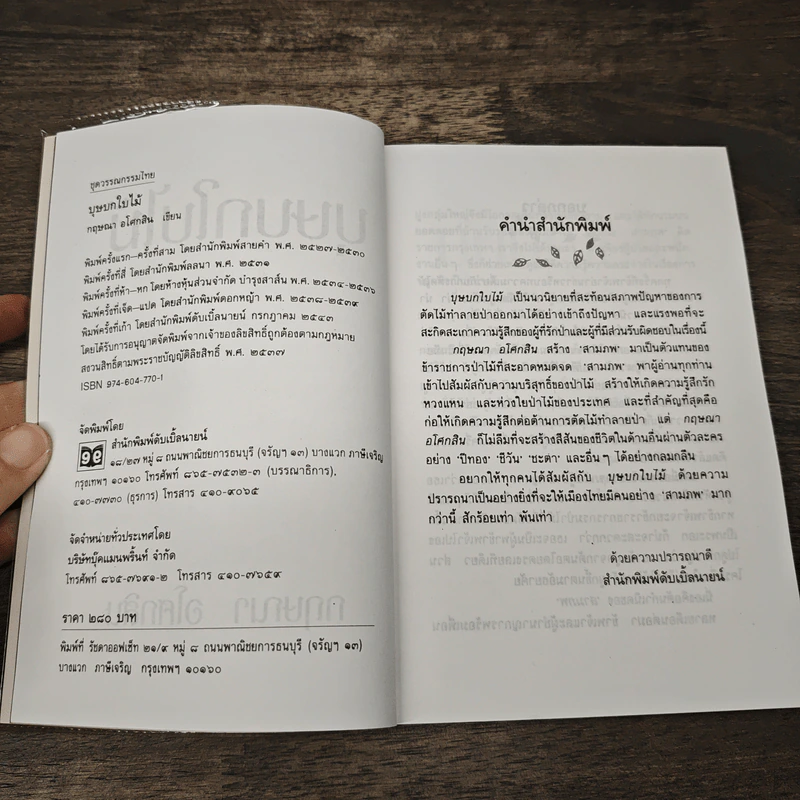 ชุดวรรณกรรมไทย
บุษบกใบไม้
กฤษณา อโศกสิน เขียน
พิมพ์ครั้งแรก–ครั้งที่สาม โดยสำนักพิมพ์สายคำ พ.ศ. ๒๕๒๗-๒๕๓๐
พิมพ์ครั้งที่สี่ โดยสำนักพิมพ์ลลนา พ.ศ. ๒๕๓๑
พิมพ์ครั้งที่ห้า–หก โดยห้างหุ้นส่วนจำกัด บำรุงสาส์น พ.ศ. ๒๕๓๔-๒๕๓๖
พิมพ์ครั้งที่เจ็ด–แปด โดยสำนักพิมพ์ดอกหญ้า พ.ศ. ๒๕๓๘-๒๕๓๙
พิมพ์ครั้งที่เก้า โดยสำนักพิมพ์ดับเบิ้ลนายน์ กรกฎาคม ๒๕๔๓
โดยได้รับการอนุญาตจัดพิมพ์จากเจ้าของลิขสิทธิ์ถูกต้องตามกฎหมาย
สงวนลิขสิทธิ์ตามพระราชบัญญัติลิขสิทธิ์ พ.ศ. ๒๕๓๗
ISBN 974-604-770-1
จัดพิมพ์โดย
สำนักพิมพ์ดับเบิ้ลนายน์
๑๘/๒๗ หมู่ ๘ ถนนพาณิชยการธนบุรี (จรัญฯ ๑๓) บางแวก ภาษีเจริญ
กรุงเทพฯ ๑๐๑๖๐ โทรศัพท์ ๘๖๕-๗๕๓๒-๓ (บรรณาธิการ),
๔๑๐-๗๗๓๐ (ธุรการ) โทรสาร ๔๑๐-๙๐๖๕
จัดจำหน่ายทั่วประเทศโดย
บริษัทบุ๊คแมนพริ้นท์ จำกัด
โทรศัพท์ ๘๖๕-๗๖๙๑-๒ โทรสาร ๔๑๐-๗๖๕๙
ราคา ๒๘๐ บาท
พิมพ์ที่ รัชดาออฟเซ็ท ๒๑/๙ หมู่ ๘ ถนนพาณิชยการธนบุรี (จรัญฯ ๑๓)
บางแวก ภาษีเจริญ กรุงเทพฯ ๑๐๑๖๐
คำนำสำนักพิมพ์
บุษบกใบไม้ เป็นนวนิยายที่สะท้อนสภาพปัญหาของการ
ตัดไม้ทำลายป่าออกมาได้อย่างเข้าถึงปัญหา และแรงพอที่จะ
สะกิดสะเกาความรู้สึกของผู้ที่รักป่าและผู้ที่มีส่วนรับผิดชอบในเรื่องนี้
กฤษณา อโศกสิน สร้าง 'สามภพ' มาเป็นตัวแทนของ
ข้าราชการป่าไม้ที่สะอาดหมดจด 'สามภพ' พาผู้อ่านทุกท่าน
เข้าไปสัมผัสกับความบริสุทธิ์ของป่าไม้ สร้างให้เกิดความรู้สึกรัก
หวงแหน และห่วงใยป่าไม้ของประเทศ และที่สำคัญที่สุดคือ
ก่อให้เกิดความรู้สึกต่อต้านการตัดไม้ทำลายป่า แต่ กฤษณา
อโศกสิน ก็ไม่ลืมที่จะสร้างสีสันของชีวิตในด้านอื่นผ่านตัวละคร
อย่าง 'ปีทอง' 'ชีวัน' 'ชะตา' และอื่นๆ ได้อย่างกลมกลืน
อยากให้ทุกคนได้สัมผัสกับ บุษบกใบไม้ ด้วยความ
ปรารถนาเป็นอย่างยิ่งที่จะให้เมืองไทยมีคนอย่าง 'สามภพ' มาก
กว่านี้ สักร้อยเท่า พันเท่า
ด้วยความปรารถนาดี
สำนักพิมพ์ดับเบิ้ลนายน์